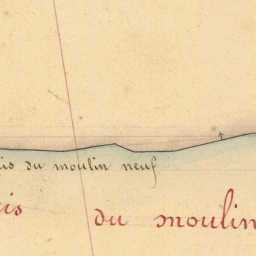 is du moulin neuf
is du moulin